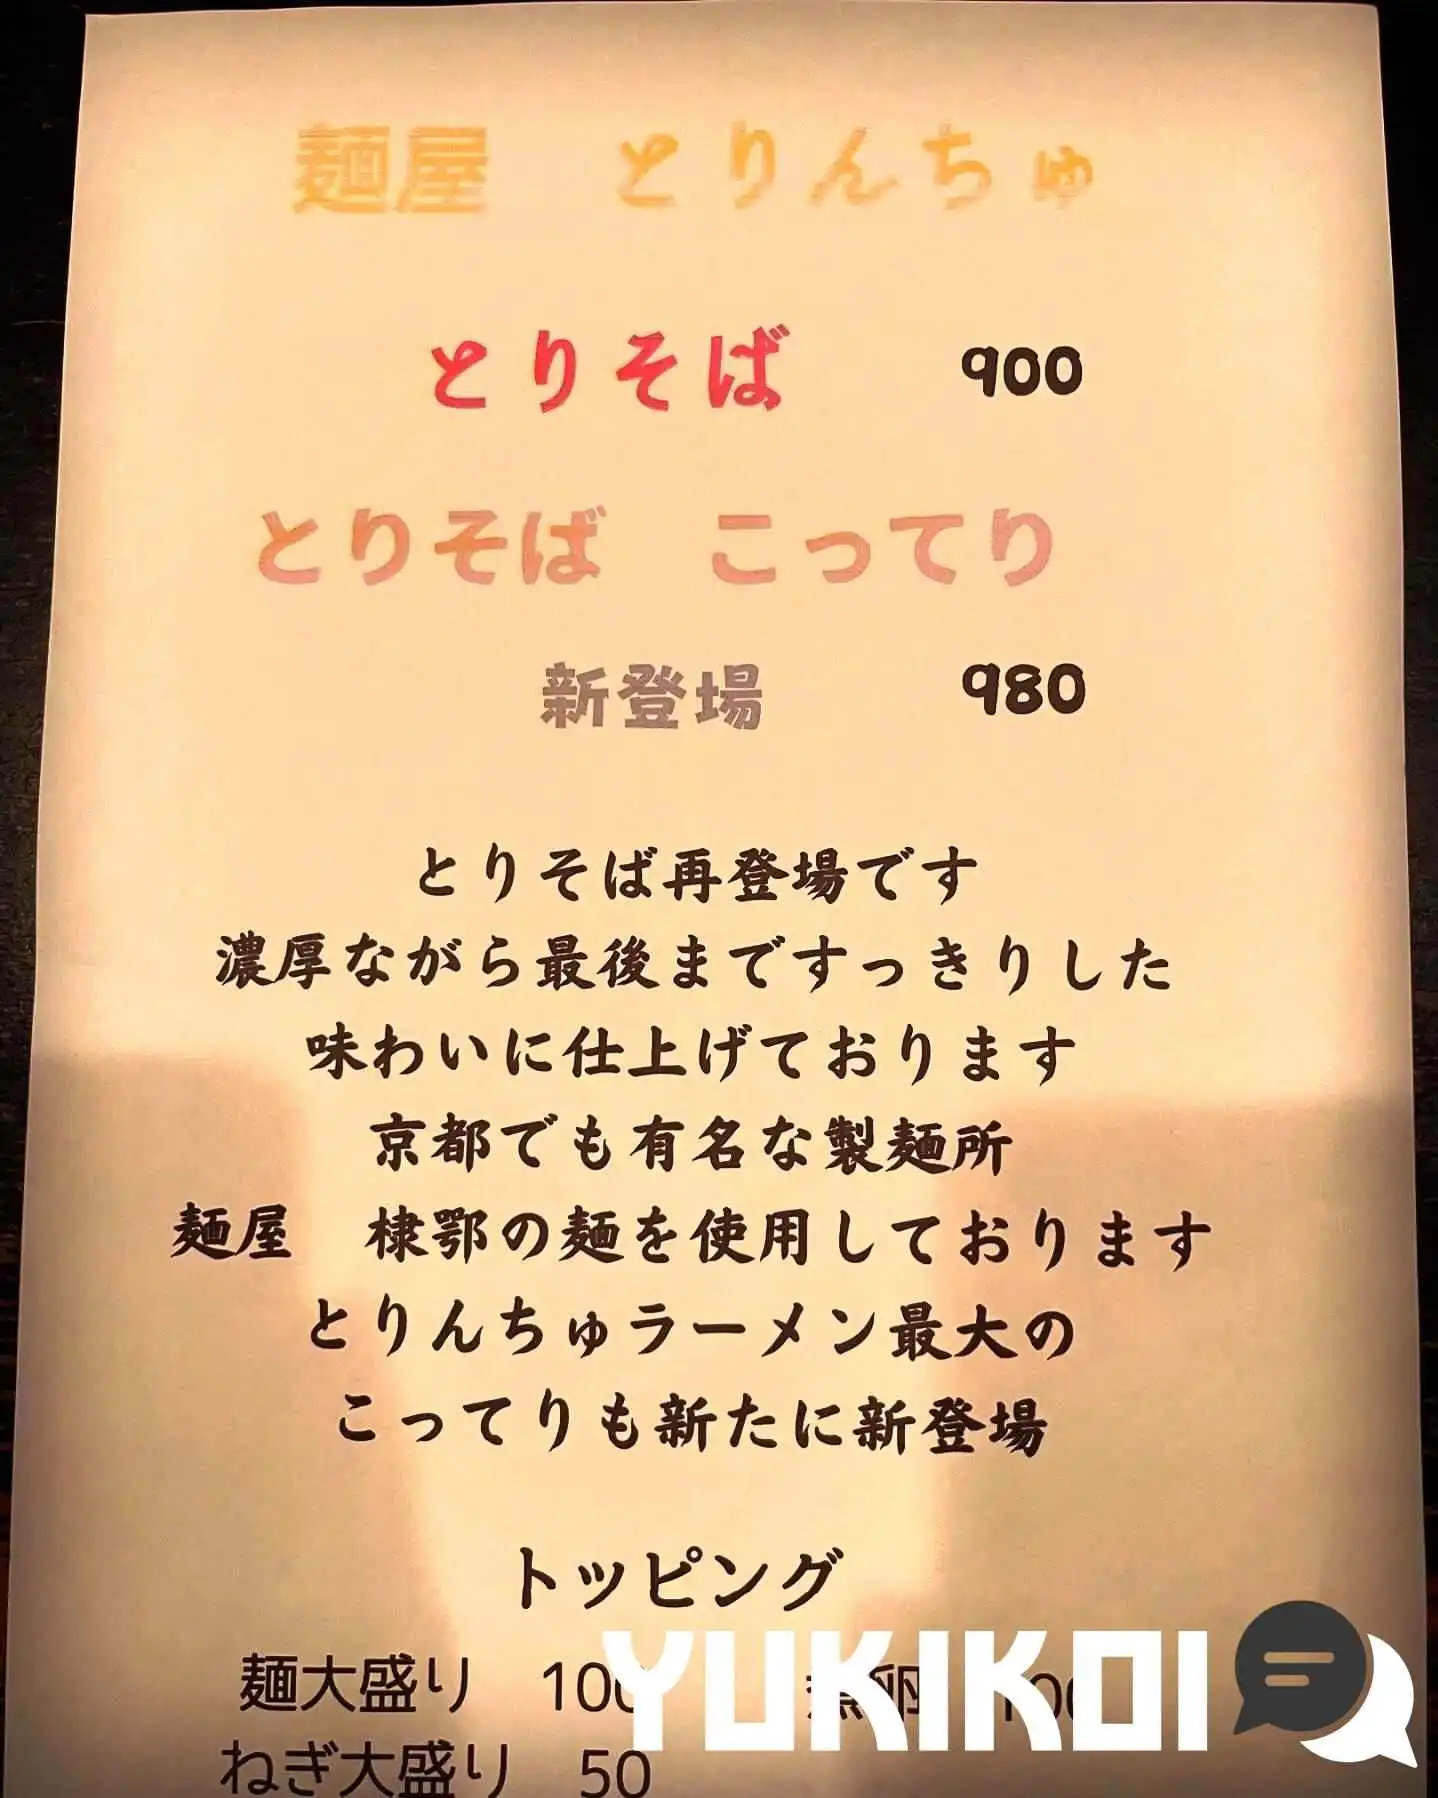 麺屋　とりんちゅ
とりそば　900
とりそば　こってり
新登場　980
とりそば再登場です
濃厚ながら最後まですっきりした
味わいに仕上げております
京都でも有名な製麺所
麺屋　棣鄂の麺を使用しております
とりんちゅラーメン最大の
こってりも新たに新登場
トッピング
麺大盛り　100　煮卵　100
ねぎ大盛り　50
YUKIKOI